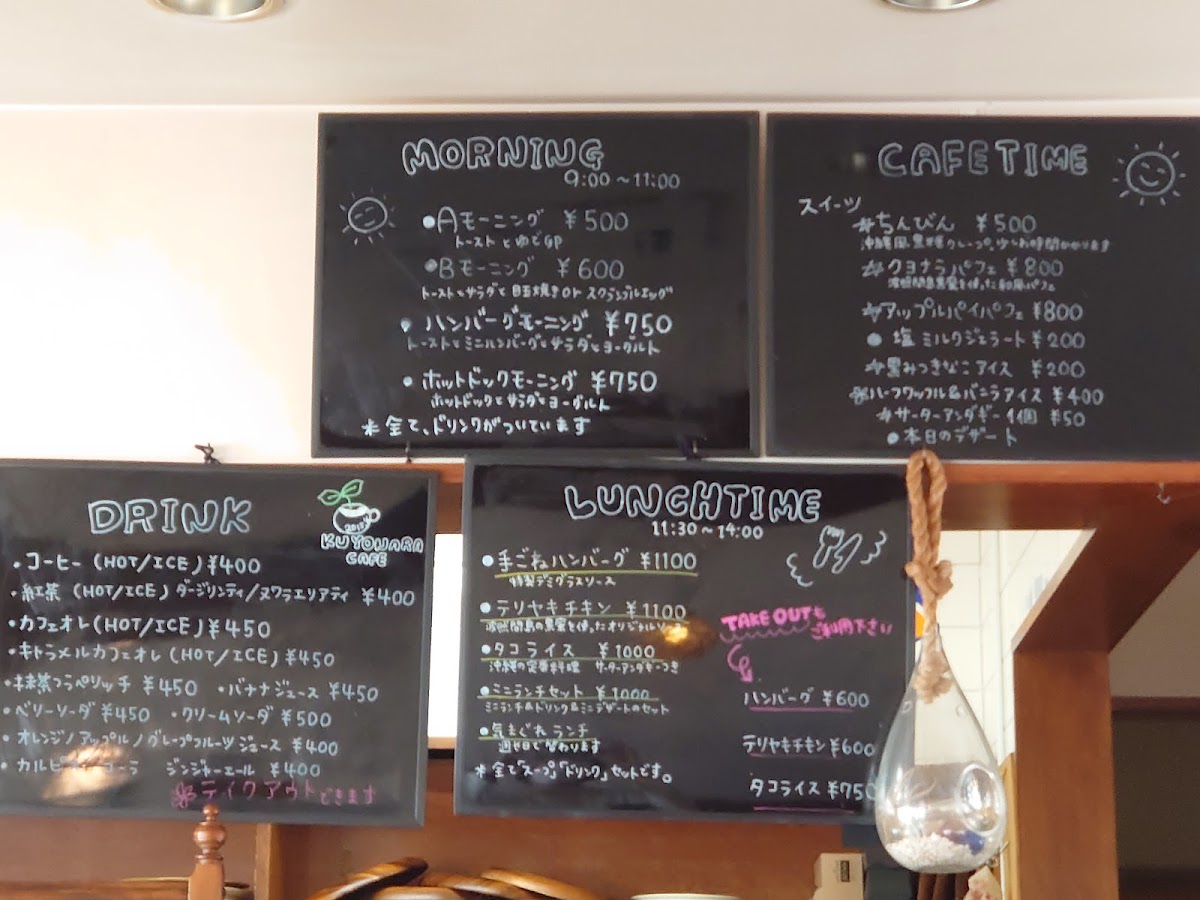 MORNING
9:00〜11:00
●Aモーニング ¥500
トーストとゆでGP
●Bモーニング ¥600
トーストとサラダと目玉焼きorスクランブルエッグ
●ハンバーグモーニング ¥750
トーストとミニハンバーグとサラダとヨーグルト
●ホットドックモーニング ¥750
ホットドックとサラダとヨーグルト
*全て、ドリンクがついています
CAFE TIME
スイーツ
ちんびん ¥500
沖縄風黒糖クレープ。少しお時間かかります
クヨナラパフェ ¥800
波照間島黒蜜を使った和風パフェ
アップルパイパフェ ¥800
●塩ミルクジェラート ¥200
黒みつきなこアイス ¥200
ハーフワッフル&バニラアイス ¥400
サーターアンダギー 1個 ¥50
●本日のデザート
DRINK
2015
KUYONARA
CAFE
・コーヒー(HOT/ICE)¥400
・紅茶(HOT/ICE)ダージリンティ/ヌワラエリアティ ¥400
・カフェオレ(HOT/ICE)¥450
・キャラメルカフェオレ(HOT/ICE)¥450
・抹茶フラペリッチ ¥450 ・バナナジュース ¥450
・ベリーソーダ ¥450 ・クリームソーダ ¥500
・オレンジ/アップル/グレープフルーツジュース ¥400
・カルピス コーラ ジンジャーエール ¥400
テイクアウトできます
LUNCHTIME
11:30〜14:00
●手ごねハンバーグ ¥1100
特製デミグラスソース
●テリヤキチキン ¥1100
波照間島の黒蜜を使ったオリジナルソース
●タコライス ¥1000
沖縄の定番料理 サーターアンダギーつき
●ミニランチセット ¥1000
ミニランチ&ドリンク&ミニデザートのセット
●気まぐれランチ
週と日で替わります
*全て「スープ」「ドリンク」セットです。
TAKE OUTも
ご利用下さい
ハンバーグ ¥600
テリヤキチキン ¥600
タコライス ¥750